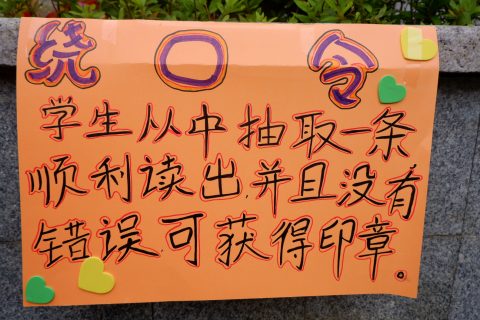 绕口令
学生从中抽取一条
顺利读出,并且没有
错误,可获得印章。